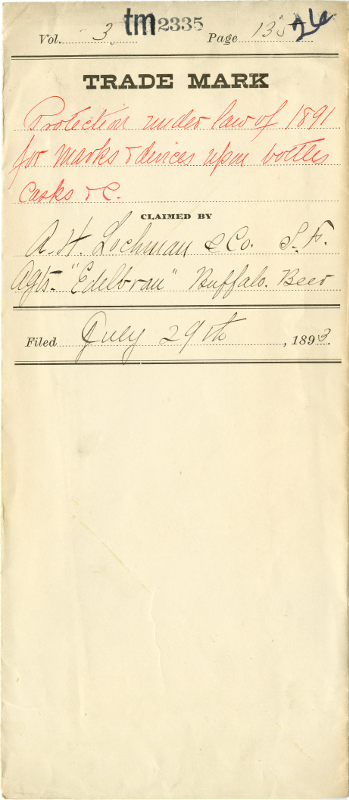 Vol. 3 tm 2335 Page 135 26
TRADE MARK
Protection under law of 1891
for marks & devices upon bottles
Casks & C.
CLAIMED BY
A. H. Lochman & Co. S. F.
Agts. "Edelbrau" Buffalo. Beer
Filed July 29th, 1893.